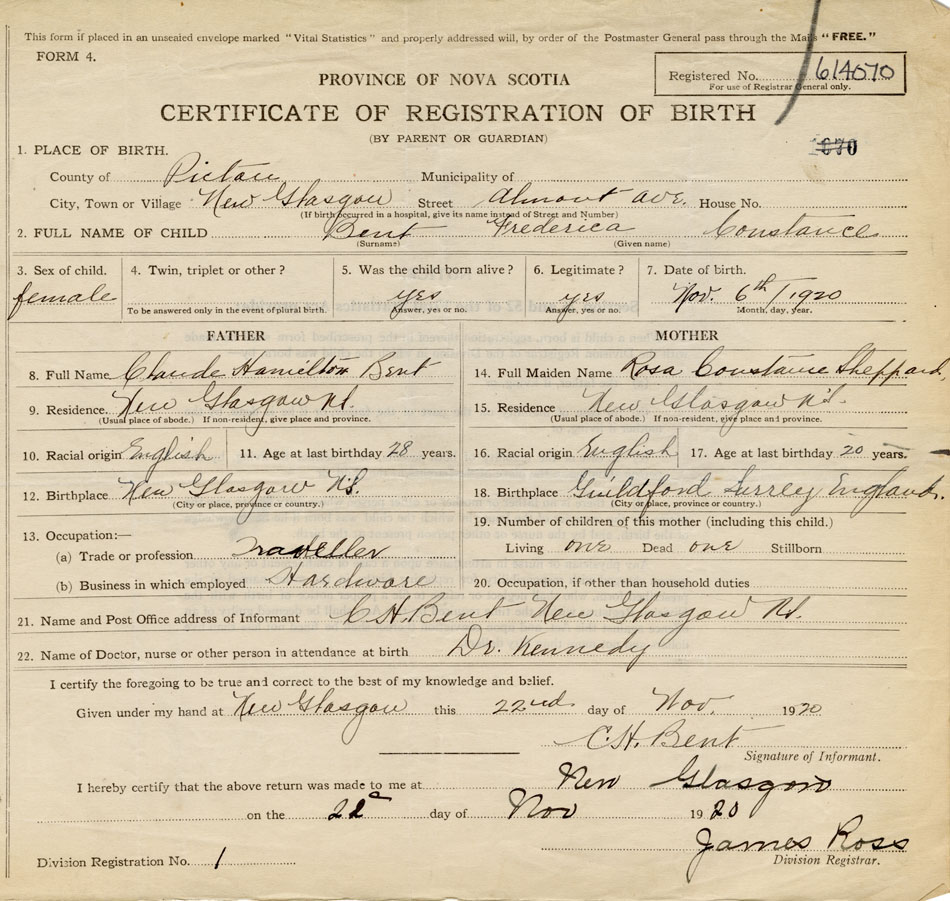 This form if placed in an unsealed envelope marked "Vital Statistics" and properly addressed will, by order of the Postmaster General pass through the Mails "FREE."
FORM 4.
Registered No. 614070
For use of Registrar General only.
PROVINCE OF NOVA SCOTIA
CERTIFICATE OF REGISTRATION OF BIRTH
(BY PARENT OR GUARDIAN)
1670
1. PLACE OF BIRTH.
County of Pictou Municipality of
City, Town or Village New Glasgow Street Almont Ave. House No.
(If birth occurred in a hospital, give its name instead of Street and Number)
2. FULL NAME OF CHILD Bent Frederica Constance
(Surname) (Given name)
3. Sex of child. 4. Twin, triplet or other? 5. Was the child born alive? 6. Legitimate? 7. Date of birth.
female yes yes Nov. 6th/1920
To be answered only in the event of plural birth. Answer, yes or no. Answer, yes or no. Month, day, year.
FATHER MOTHER
8. Full Name Claude Hamilton Bent 14. Full Maiden Name Rosa Constance Sheppard.
9. Residence. New Glasgow N.S. 15. Residence New Glasgow N.S.
(Usual place of abode.) If non-resident, give place and province. (Usual place of abode.) If non-resident, give place and province.
10. Racial origin English 11. Age at last birthday 28 years. 16. Racial origin English 17. Age at last birthday 20 years.
12. Birthplace New Glasgow N.S. 18. Birthplace Guildford Surrey England.
(City or place, province or country.) (City or place, province or country.)
13. Occupation:— 19. Number of children of this mother (including this child.)
(a) Trade or profession Traveller Living one Dead one Stillborn
(b) Business in which employed Hardware 20. Occupation, if other than household duties
21. Name and Post Office address of Informant C.H. Bent New Glasgow N.S.
22. Name of Doctor, nurse or other person in attendance at birth Dr. Kennedy
I certify the foregoing to be true and correct to the best of my knowledge and belief.
Given under my hand at New Glasgow this 22nd day of Nov. 1920
C.H. Bent
Signature of Informant.
I hereby certify that the above return was made to me at New Glasgow
on the 22d day of Nov 1920
James Ross
Division Registrar.
Division Registration No. 1